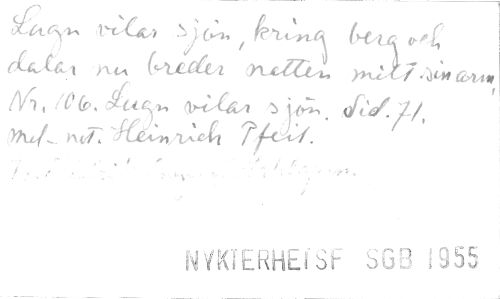 Lugn vilar sjön, kring berg och
dalar nu breder natten milt sin arm,
Nr. 106. Lugn vilar sjön. Sid. 71.
mel-not. Heinrich Pfeil.
NYKTERHETSF SGB 1955